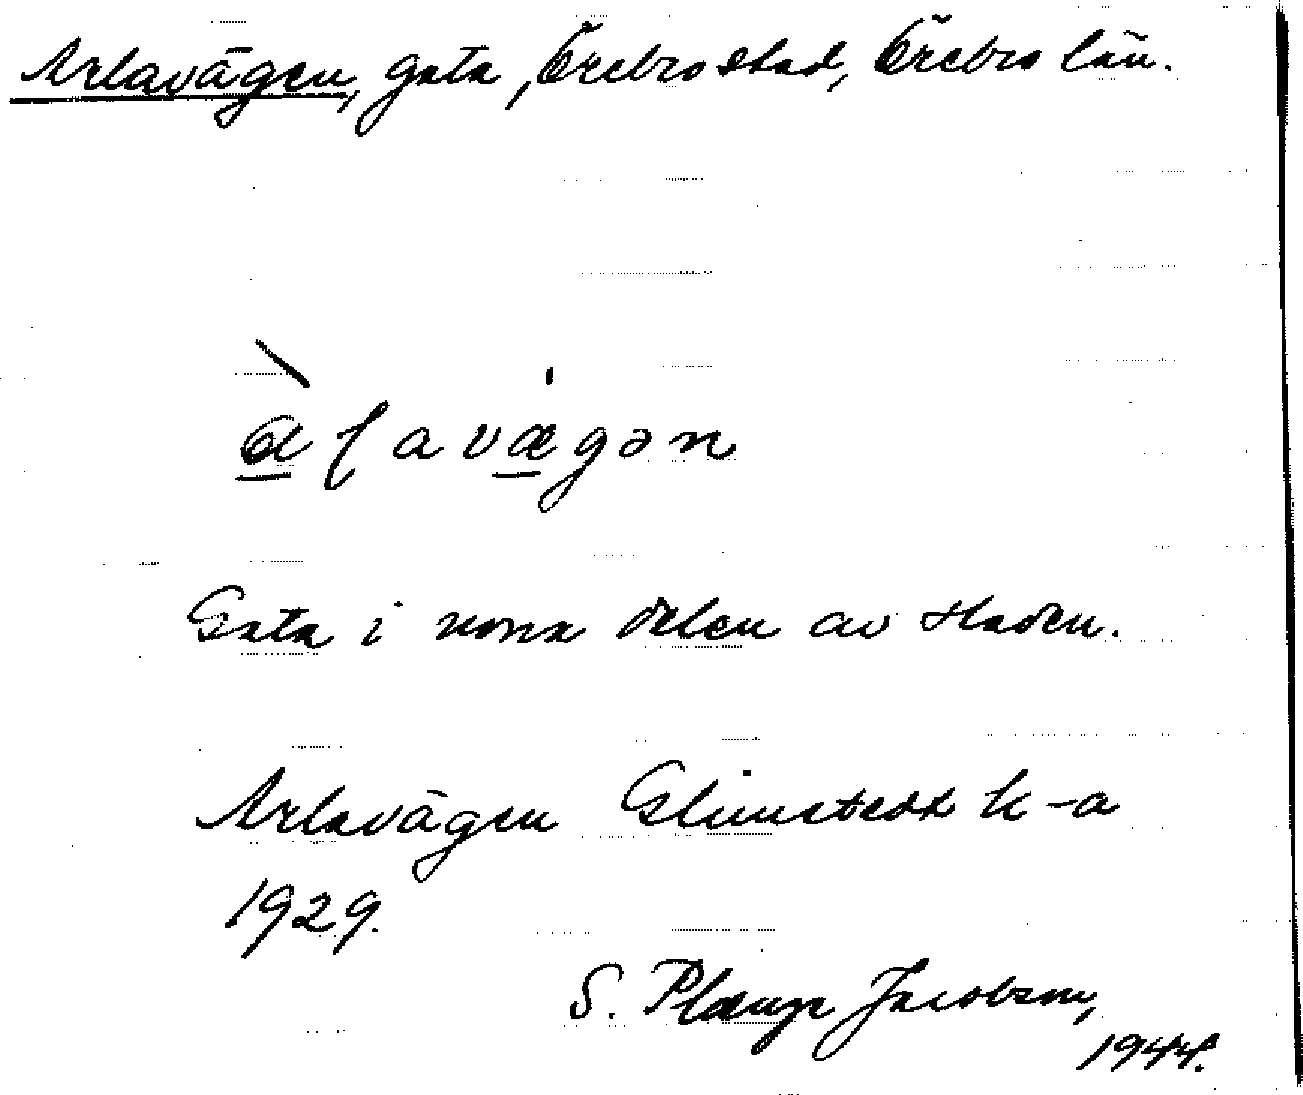 Arlavägen, gata, Örebro stad, Örebro län.
Gata i norra delen av staden.
Arlavägen Glimstedt k-a
1929.
S. Plœnge Jacobson,
1944.